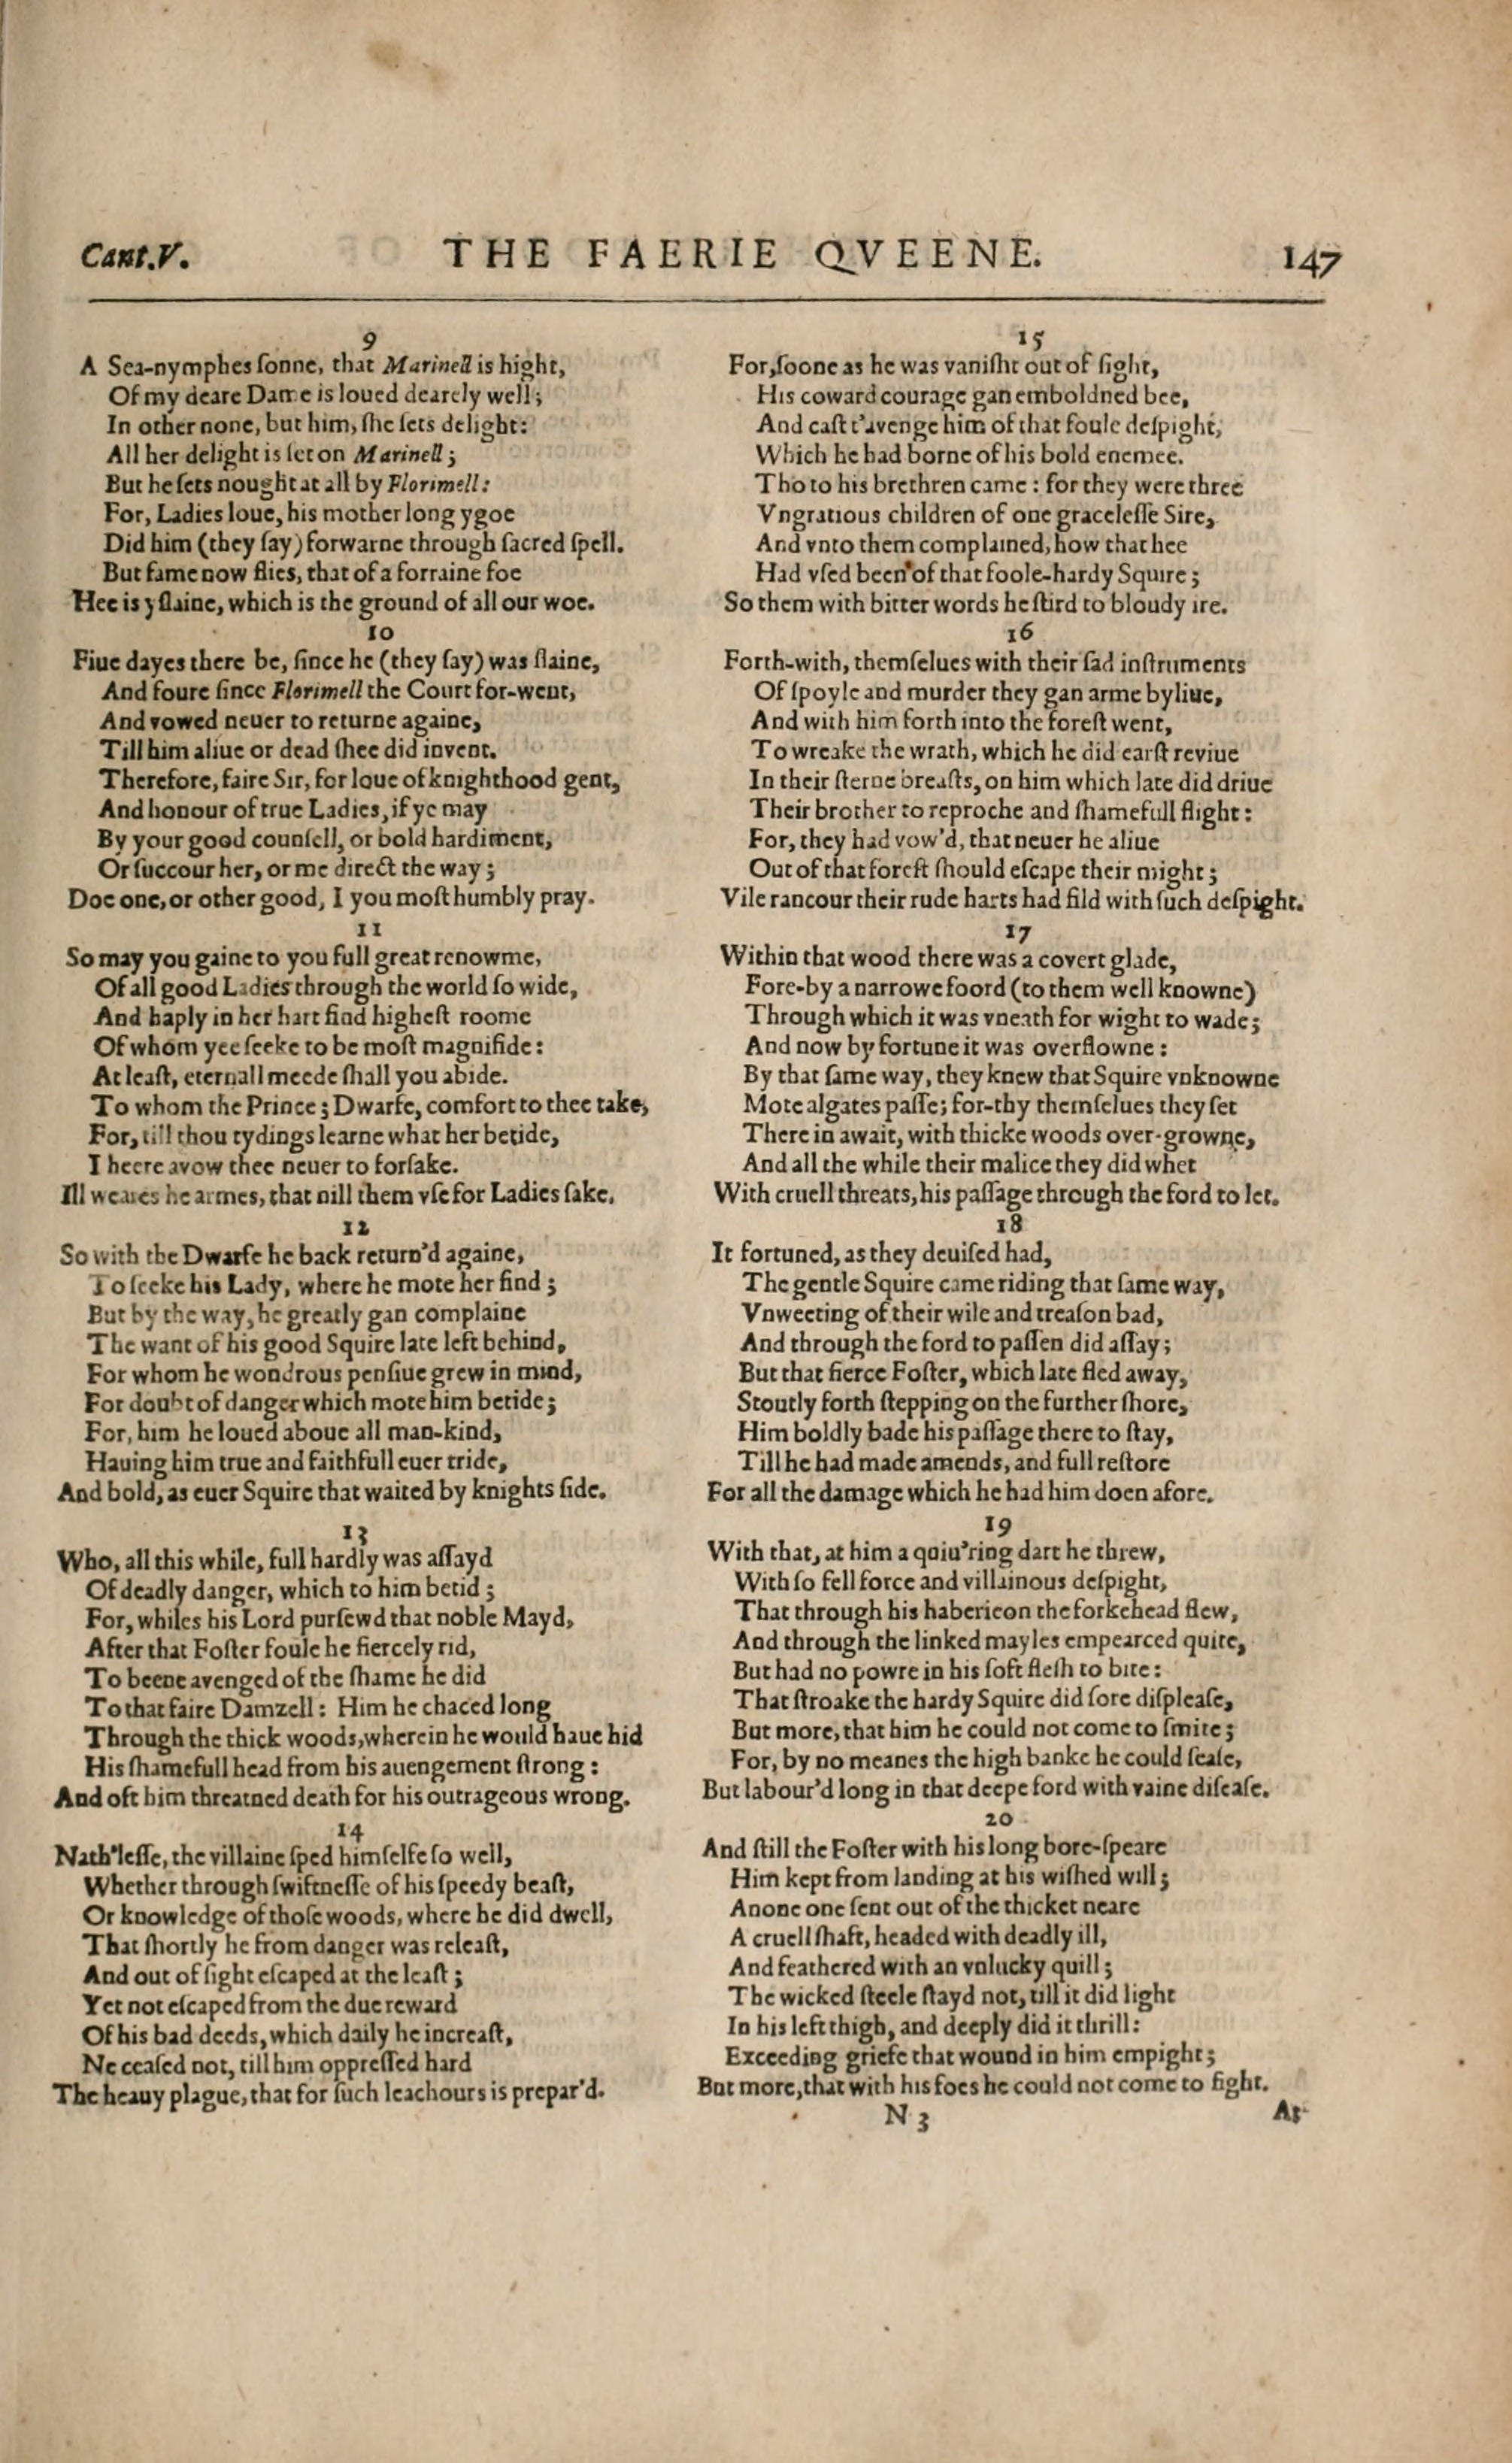 Cant.V. THE FAERIE QVEENE. 147
9
A Sea-nymphes ſonne, that Marinell is hight,
Of my deare Dame is loued dearely well;
In other none, but him, ſhe ſets delight:
All her delight is ſet on Marinell;
But he ſets nought at all by Florimell:
For, Ladies loue, his mother long ygoe
Did him (they ſay) forwarne through ſacred ſpell.
But fame now flies, that of a forraine foe
Hee is yſlaine, which is the ground of all our woe.
10
Fiue dayes there be, ſince he (they ſay) was ſlaine,
And foure ſince Florimell the Court for-went,
And vowed neuer to returne againe,
Till him aliue or dead ſhee did invent.
Therefore, faire Sir, for loue of knighthood gent,
And honour of true Ladies, if ye may
By your good counſell, or bold hardiment,
Or ſuccour her, or me direct the way;
Doe one, or other good, I you moſt humbly pray.
11
So may you gaine to you full great renowme,
Of all good Ladies through the world ſo wide,
And haply in her hart find higheſt roome
Of whom yee ſeeke to be moſt magnifide:
At leaſt, eternall meede ſhall you abide.
To whom the Prince; Dwarfe, comfort to thee take,
For, till thou tydings learne what her betide,
I heere avow thee neuer to forſake.
Ill weares he armes, that nill them vſe for Ladies ſake.
12
So with the Dwarfe he back return'd againe,
To ſeeke his Lady, where he mote her find;
But by the way, he greatly gan complaine
The want of his good Squire late left behind,
For whom he wondrous penſiue grew in mind,
For doubt of danger which mote him betide;
For, him he loued aboue all man-kind,
Hauing him true and faithfull euer tride,
And bold, as euer Squire that waited by knights ſide.
13
Who, all this while, full hardly was aſſayd
Of deadly danger, which to him betid;
For, whiles his Lord purſewd that noble Mayd,
After that Foſter foule he fiercely rid,
To beene avenged of the ſhame he did
To that faire Damzell: Him he chaced long
Through the thick woods, wherein he would haue hid
His ſhamefull head from his auengement ſtrong:
And oft him threatned death for his outrageous wrong.
14
Nath'leſſe, the villaine ſped himſelfe ſo well,
Whether through ſwiftneſſe of his ſpeedy beaſt,
Or knowledge of thoſe woods, where he did dwell,
That ſhortly he from danger was releaſt,
And out of ſight eſcaped at the leaſt;
Yet not eſcaped from the due reward
Of his bad deeds, which daily he increaſt,
Ne ceaſed not, till him oppreſſed hard
The heauy plague, that for ſuch leachours is prepar'd.
15
For, ſoone as he was vaniſht out of ſight,
His coward courage gan emboldned bee,
And caſt t'avenge him of that foule deſpight,
Which he had borne of his bold enemee.
Tho to his brethren came: for they were three
Vngratious children of one graceleſſe Sire,
And vnto them complained, how that hee
Had vſed been of that foole-hardy Squire;
So them with bitter words he ſtird to bloudy ire.
16
Forth-with, themſelues with their ſad inſtruments
Of ſpoyle and murder they gan arme byliue,
And with him forth into the foreſt went,
To wreake the wrath, which he did earſt reviue
In their ſterne breaſts, on him which late did driue
Their brother to reproche and ſhamefull flight:
For, they had vow'd, that neuer he aliue
Out of that foreſt ſhould eſcape their might;
Vile rancour their rude harts had fild with ſuch deſpight.
17
Within that wood there was a covert glade,
Fore-by a narrowe foord (to them well knowne)
Through which it was vneath for wight to wade;
And now by fortune it was overflowne:
By that ſame way, they knew that Squire vnknowne
Mote algates paſſe; for-thy themſelues they ſet
There in await, with thicke woods over-growne,
And all the while their malice they did whet
With cruell threats, his paſſage through the ford to let.
18
It fortuned, as they deuiſed had,
The gentle Squire came riding that ſame way,
Vnweeting of their wile and treaſon bad,
And through the ford to paſſen did aſſay;
But that fierce Foſter, which late fled away,
Stoutly forth ſtepping on the further ſhore,
Him boldly bade his paſſage there to ſtay,
Till he had made amends, and full reſtore
For all the damage which he had him doen afore.
19
With that, at him a quiu'ring dart he threw,
With ſo fell force and villainous deſpight,
That through his habericon the forkehead flew,
And through the linked mayles empearced quite,
But had no powre in his ſoft fleſh to bite:
That ſtroake the hardy Squire did ſore diſpleaſe,
But more, that him he could not come to ſmite;
For, by no meanes the high banke he could ſeaſe,
But labour'd long in that deepe ford with vaine diſeaſe.
20
And ſtill the Foſter with his long bore-ſpeare
Him kept from landing at his wiſhed will;
Anone one ſent out of the thicket neare
A cruell ſhaft, headed with deadly ill,
And feathered with an vnlucky quill;
The wicked ſteele ſtayd not, till it did light
In his left thigh, and deeply did it thrill:
Exceeding griefe that wound in him empight;
But more, that with his foes he could not come to fight.
N 3 At